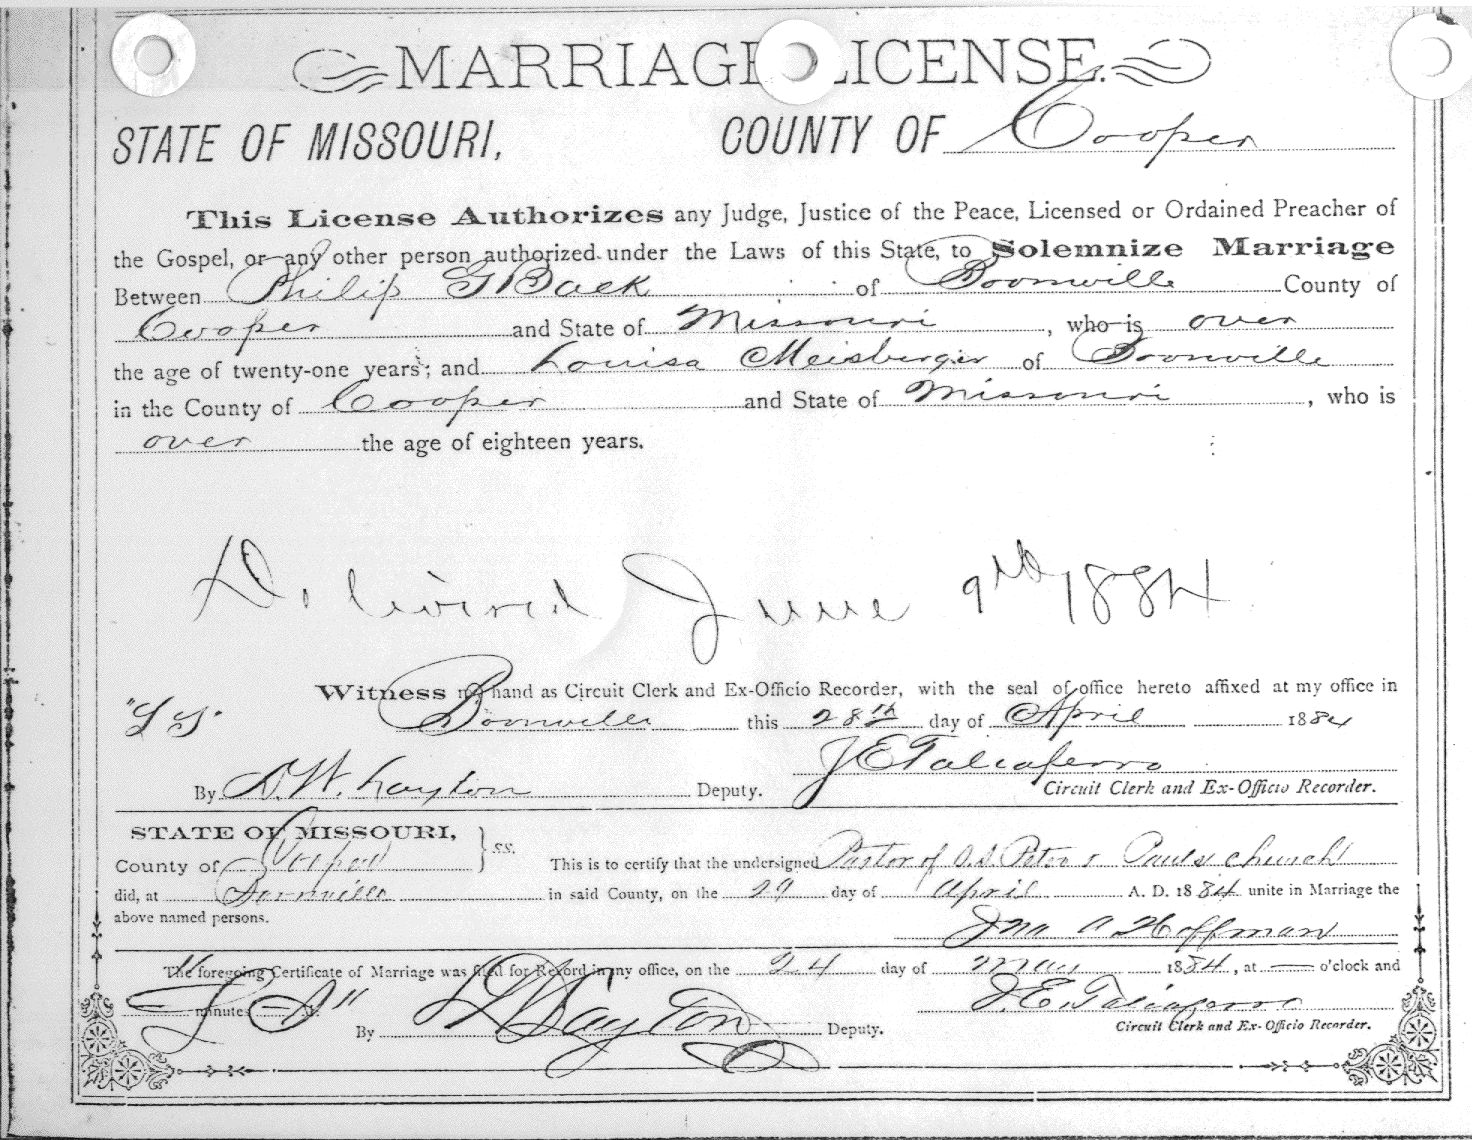 MARRIAGE LICENSE.
STATE OF MISSOURI, COUNTY OF Cooper
This License Authorizes any Judge, Justice of the Peace, Licensed or Ordained Preacher of
the Gospel, or any other person authorized under the Laws of this State, to Solemnize Marriage
Between Philip G Back of Boonville County of
Cooper and State of Missouri, who is over
the age of twenty-one years; and Louisa Meisberger of Boonville
in the County of Cooper and State of Missouri, who is
over the age of eighteen years.
Delivired June 9th 1884
Witness my hand as Circuit Clerk and Ex-Officio Recorder, with the seal of office hereto affixed at my office in
"LS" Boonville this 28th day of April 1884
J E Taliaferro
By D. W. Layton Deputy. Circuit Clerk and Ex-Officio Recorder.
STATE OF MISSOURI,
County of Cooper } ss. This is to certify that the undersigned Pastor of S.S. Peter & Pauls church
did, at Boonville in said County, on the 29 day of April A. D. 1884 unite in Marriage the
above named persons.
Jno A Hoffman
The foregoing Certificate of Marriage was filed for Record in my office, on the 24 day of May 1884, at — o'clock and
minutes M. J. E. Taliaferro
"L S" By Layton Deputy. Circuit Clerk and Ex-Officio Recorder.